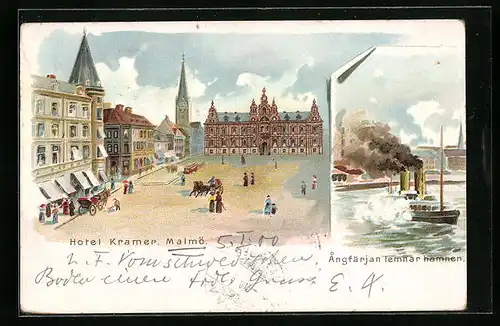 Hotel Kramer. Malmö. 5/5.00
Ångfärjan lemnar hamnen.
L. F. Vom schwedischen
Boden einen Gruss E. A.